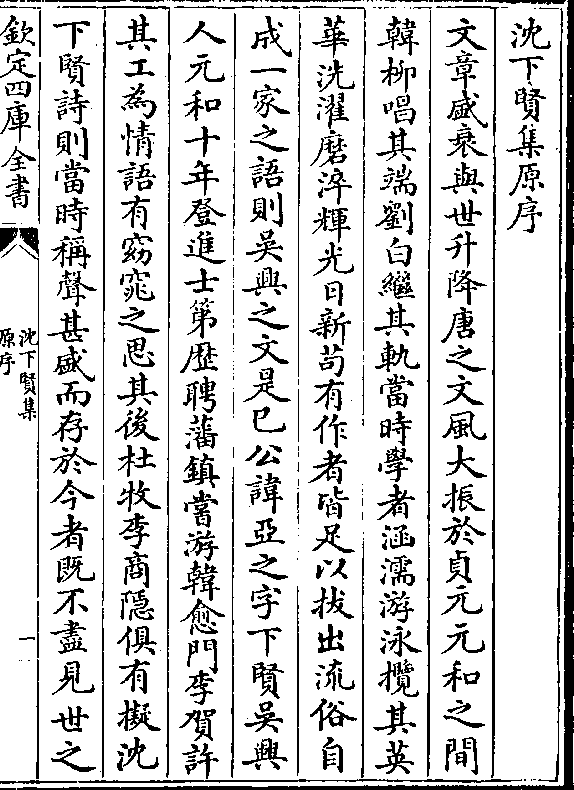 沈下賢集原序
文章盛衰與世升降唐之文風大振於貞元元和之間
韓柳唱其端劉白繼其軌當時學者涵濡游泳攬其英
華洗濯磨淬輝光日新苟有作者皆足以拔出流俗自
成一家之語則吳興之文是已公諱亞之字下賢吳興
人元和十年登進士第歴聘藩鎮嘗游韓愈門李賀許
其工為情語有窈窕之思其後杜牧李商隱俱有擬沈
下賢詩則當時稱聲甚盛而存於今者既不盡見世之
欽定四庫全書
沈下賢集
原序
一